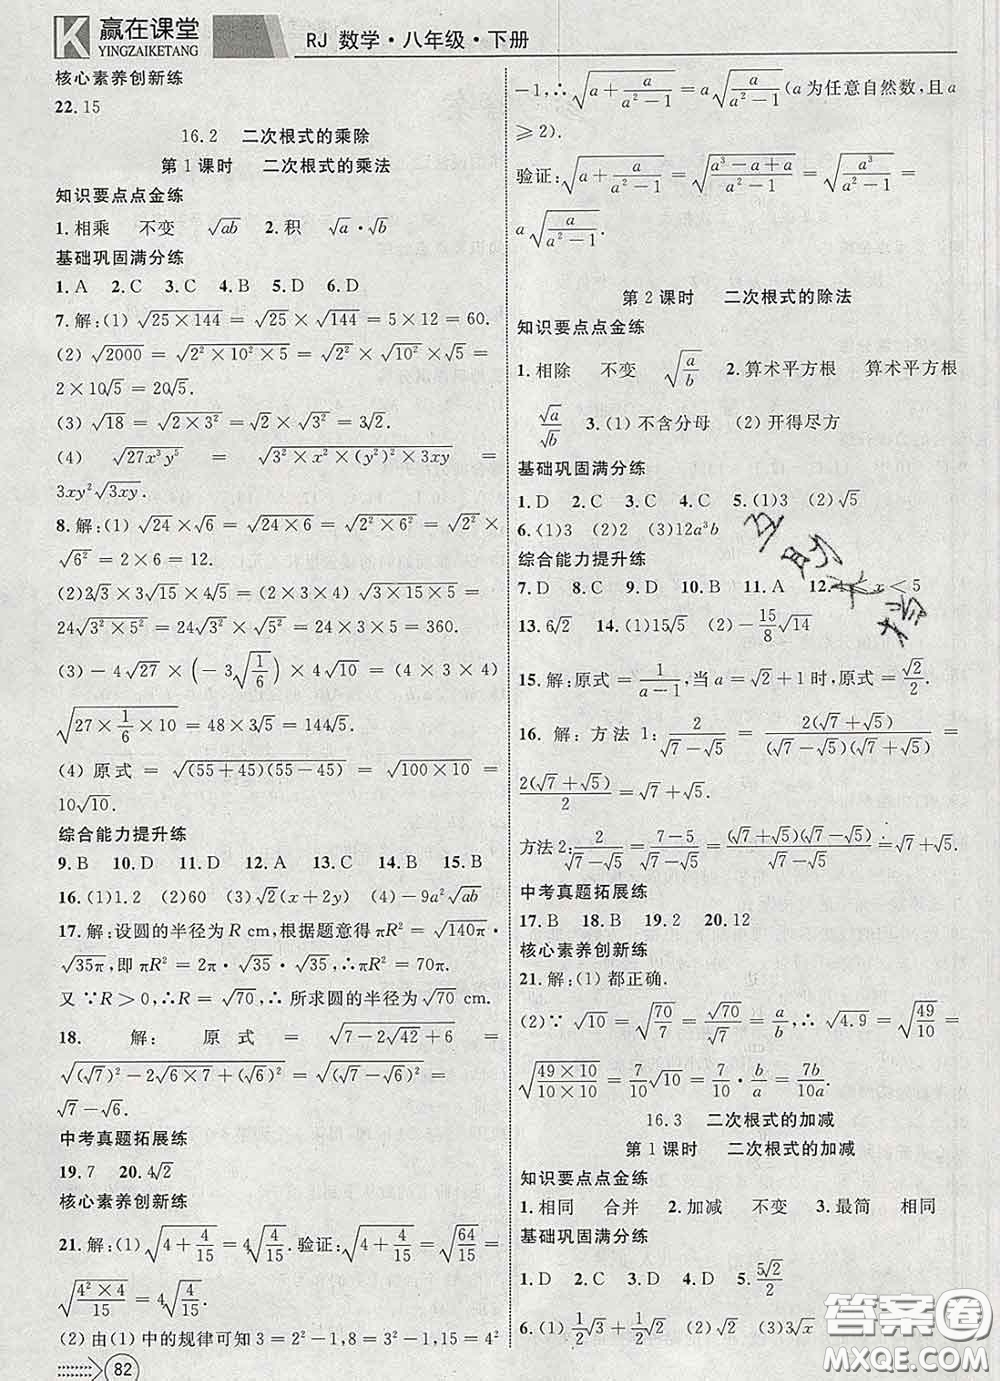 K 赢在课堂
YINGZAIKETANG
RJ 数学·八年级·下册
核心素养创新练
22. 15
16.2 二次根式的乘除
第1课时 二次根式的乘法
知识要点点金练
1. 相乘 不变 √(ab) 2. 积 √a·√b
基础巩固满分练
1. A 2. C 3. C 4. B 5. D 6. D
7. 解:(1) √(25×144) = √25 × √144 = 5×12 = 60.
(2) √2000 = √(2²×10²×5) = √2² × √10² × √5 =
2×10√5 = 20√5.
(3) √18 = √(2×3²) = √2 × √3² = 3√2.
(4) √(27x³y⁵) = √(3²×x²×(y²)²×3xy) =
3xy²√(3xy).
8. 解:(1) √24 × √6 = √(24×6) = √(2²×6²) = √2² ×
√6² = 2×6 = 12.
(2) 2√3 × 3√15 × 4√5 = (2×3×4) × √(3×15×5) =
24√(3²×5²) = 24√3² × √5² = 24×3×5 = 360.
(3) −4√27 × (−3√(1/6)) × √10 = (4×3×4)
√(27×1/6×10) = 48×3√5 = 144√5.
(4) 原式 = √((55+45)(55−45)) = √(100×10) =
10√10.
综合能力提升练
9. B 10. D 11. D 12. A 13. C 14. B 15. B
16. (1)1.2 (2)60 (3)√2(x+2y) (4)−9a²√(ab)
17. 解:设圆的半径为 R cm,根据题意得 πR² = √(140π) ·
√(35π),即 πR² = 2π·√35·√35,∴πR² = 70π.
又∵R>0,∴R = √70,∴所求圆的半径为 √70 cm.
18. 解: 原式 = √(7−2√42+6) =
√((√7)²−2√(6×7)+(√6)²) = √((√7−√6)²) =
√7−√6.
中考真题拓展练
19. 7 20. 4√2
核心素养创新练
21. 解:(1) √(4+4/15) = 4√(4/15). 验证:√(4+4/15) = √(64/15) =
√(4²×4/15) = 4√(4/15).
(2) 由(1)中的规律可知 3 = 2²−1,8 = 3²−1,15 = 4²
82
−1,∴√(a+a/(a²−1)) = a√(a/(a²−1)) (a 为任意自然数,且 a
≥2).
验证:√(a+a/(a²−1)) = √((a³−a+a)/(a²−1)) = √(a³/(a²−1)) =
a√(a/(a²−1)).
第2课时 二次根式的除法
知识要点点金练
1. 相除 不变 √(a/b) 2. 算术平方根 算术平方根
√a/√b 3. (1) 不含分母 (2) 开得尽方
基础巩固满分练
1. D 2. C 3. C 4. C 5. (1)3 (2)√5
6. (1)3 (2)2 (3)12a³b
综合能力提升练
7. D 8. C 9. D 10. B 11. A 12. x<5
13. 6√2 14. (1)15√5 (2)−15/8√14
15. 解:原式 = 1/(a−1),当 a = √2+1 时,原式 = √2/2.
16. 解: 方法 1: 2/(√7−√5) = 2(√7+√5)/((√7−√5)(√7+√5)) =
2(√7+√5)/2 = √7+√5.
方法 2: 2/(√7−√5) = (7−5)/(√7−√5) = (√7+√5)(√7−√5)/(√7−√5) = √7+√5.
中考真题拓展练
17. B 18. B 19. 2 20. 12
核心素养创新练
21. 解:(1) 都正确.
(2)∵ √10 = √(70/7) = √70/√7 = a/b,∴ √4.9 = √(49/10) =
√(49×10/(10×10)) = 7/10√10 = 7/10 · b/a = 7b/10a.
16.3 二次根式的加减
第1课时 二次根式的加减
知识要点点金练
1. 相同 合并 2. 加减 不变 3. 最简 相同
基础巩固满分练
1. D 2. C 3. D 4. A 5. 5√2/2
答案圈
MXQE.COM